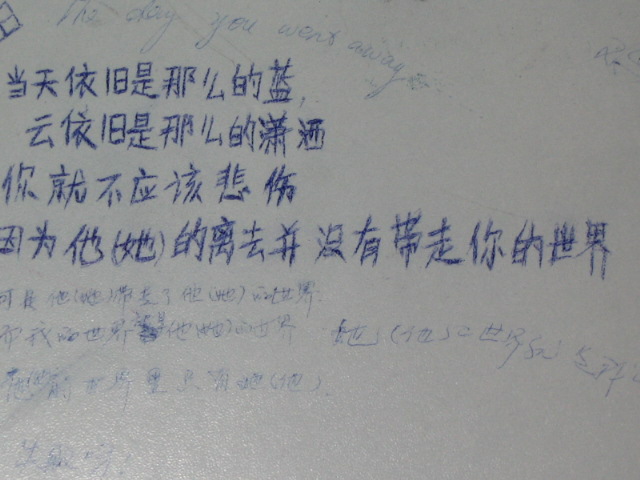 The day you went away
当天依旧是那么的蓝,
云依旧是那么的潇洒
你就不应该悲伤
因为他(她)的离去并没有带走你的世界
可是他(她)带走了他(她)的世界.
而我的世界就是他(她)的世界
世界里只有她(他).